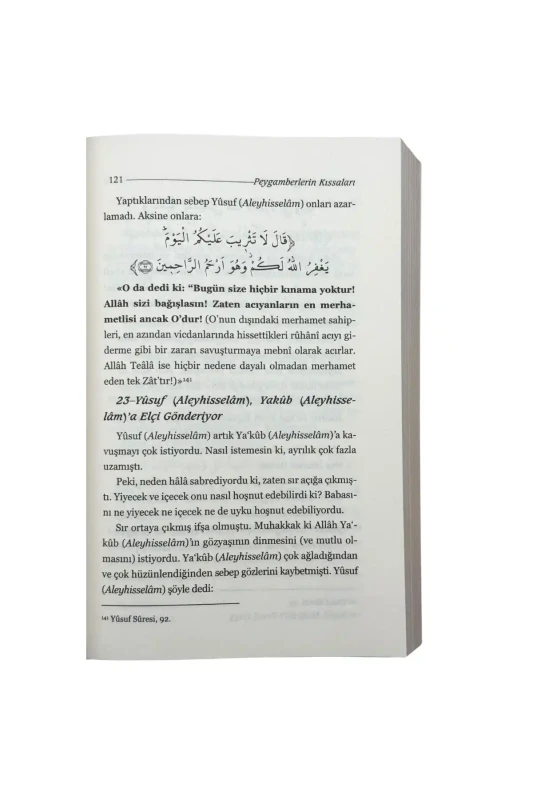 121 Peygamberlerin Kıssaları
Yaptıklarından sebep Yûsuf (Aleyhisselâm) onları azar-
lamadı. Aksine onlara:
﴿قَالَ لَا تَثْرِيبَ عَلَيْكُمُ الْيَوْمَۜ
يَغْفِرُ اللّٰهُ لَكُمْۘ وَهُوَ اَرْحَمُ الرَّاحِمِينَ ﴾
«O da dedi ki: “Bugün size hiçbir kınama yoktur!
Allâh sizi bağışlasın! Zaten acıyanların en merha-
metlisi ancak O’dur! (O’nun dışındaki merhamet sahip-
leri, en azından vicdanlarında hissettikleri rûhânî acıyı gi-
derme gibi bir zararı savuşturmaya mebnî olarak acırlar.
Allâh Teâlâ ise hiçbir nedene dayalı olmadan merhamet
eden tek Zât’tır!)»¹⁴¹
23–Yûsuf (Aleyhisselâm), Yakûb (Aleyhisse-
lâm)’a Elçi Gönderiyor
Yûsuf (Aleyhisselâm) artık Ya’kûb (Aleyhisselâm)’a ka-
vuşmayı çok istiyordu. Nasıl istemesin ki, ayrılık çok fazla
uzamıştı.
Peki, neden hâlâ sabrediyordu ki, zaten sır açığa çıkmış-
tı. Yiyecek ve içecek onu nasıl hoşnut edebilirdi ki? Babası-
nı ne yiyecek ne içecek ne de uyku hoşnut edebiliyordu.
Sır ortaya çıkmış ifşa olmuştu. Muhakkak ki Allâh Ya’-
kûb (Aleyhisselâm)’ın gözyaşının dinmesini (ve mutlu ol-
masını) istiyordu. Ya’kûb (Aleyhisselâm) çok ağladığından
ve çok hüzünlendiğinden sebep gözlerini kaybetmişti. Yûsuf
(Aleyhisselâm) şöyle dedi:
¹⁴¹ Yûsuf Sûresi, 92.